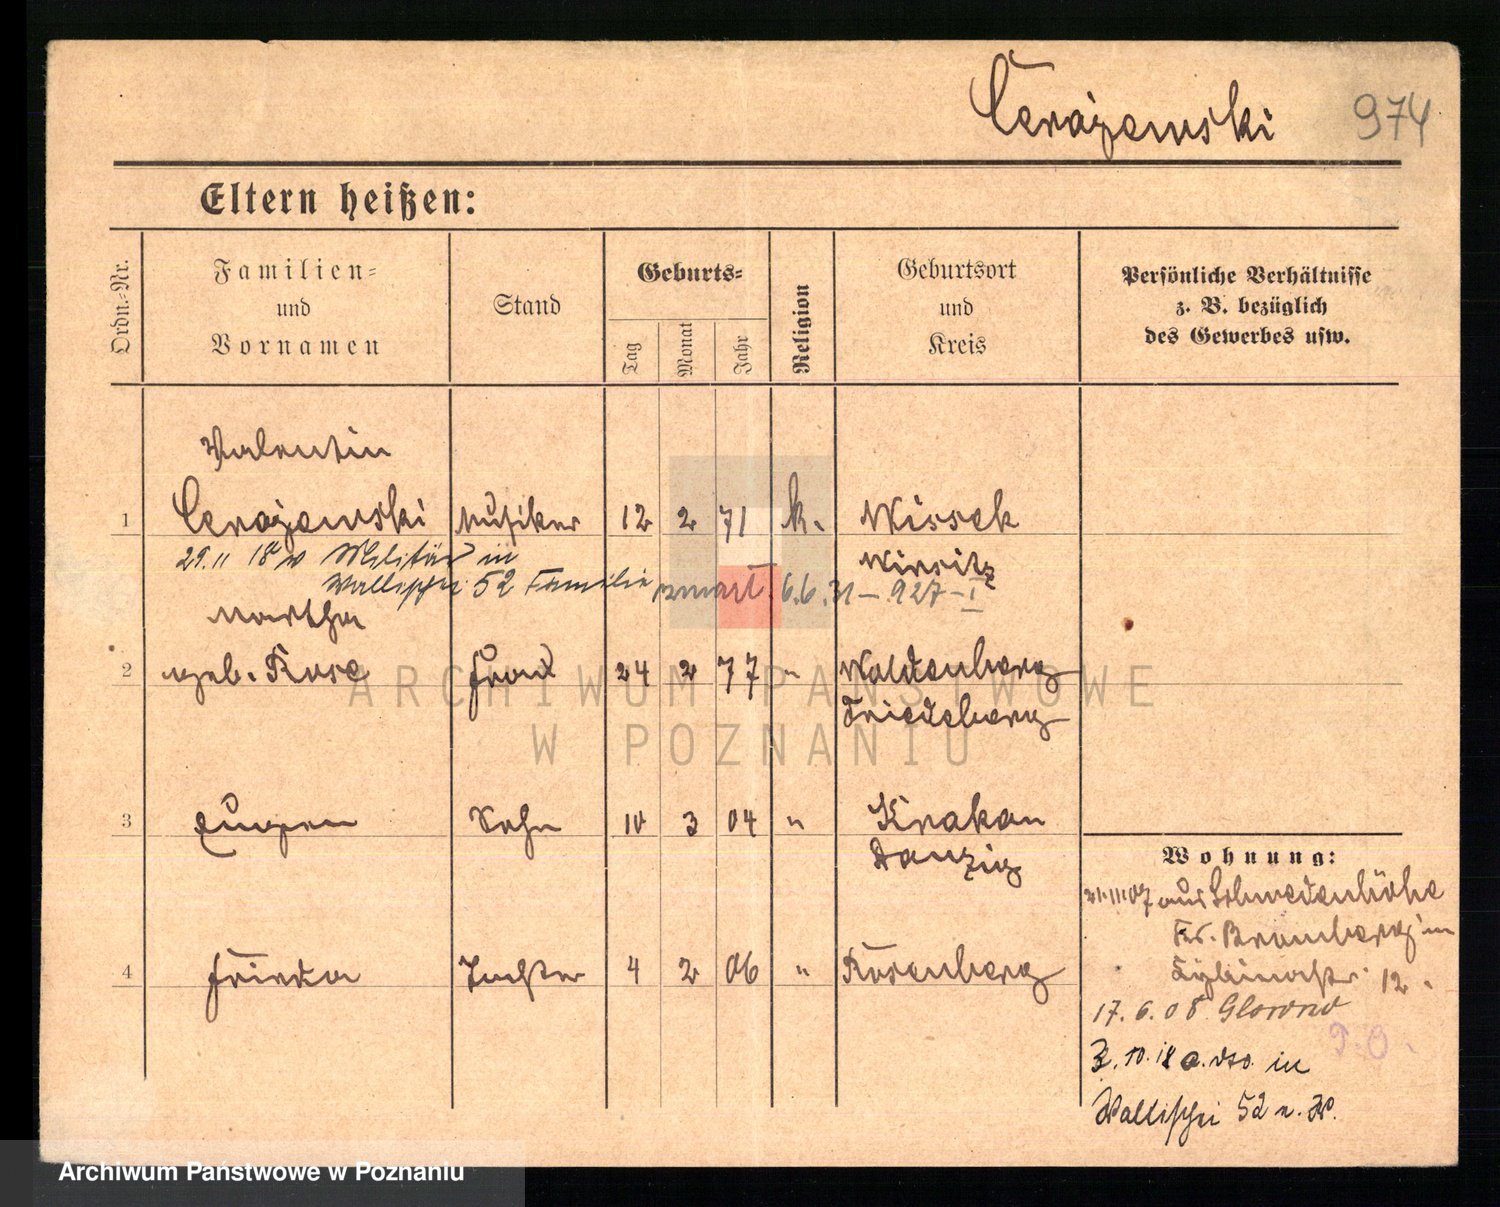 Cerajewski 974
Eltern heißen:
Ordn.-Nr.
Familien-
und
Vornamen
Stand
Geburts-
Tag
Monat
Jahr
Religion
Geburtsort
und
Kreis
Persönliche Verhältnisse
z. B. bezüglich
des Gewerbes usw.
Valentin
1 Cerajewski Musiker 12 2 71 k. Wissek
29.11 18 Militär in Wirsitz
Wallischei 52 Familie zmarł. 6.6.31 – 927 – I
Martha
2 geb. Rose Frau 24 2 77 " Woldenberg
Friedeberg
3 Eugen Sohn 10 3 04 " Krakau
Danzig
4 Frieda Tochter 4 2 06 " Rosenberg
Wohnung:
21.III 07 aus Schwedenhöhe
Kr. Bromberg in
12.
17.6.08 Glowno
T.O.
3.10.18 a. dso. in
Wallischei 52 n. W.
ARCHIWUM PAŃSTWOWE
W POZNANIU
Archiwum Państwowe w Poznaniu